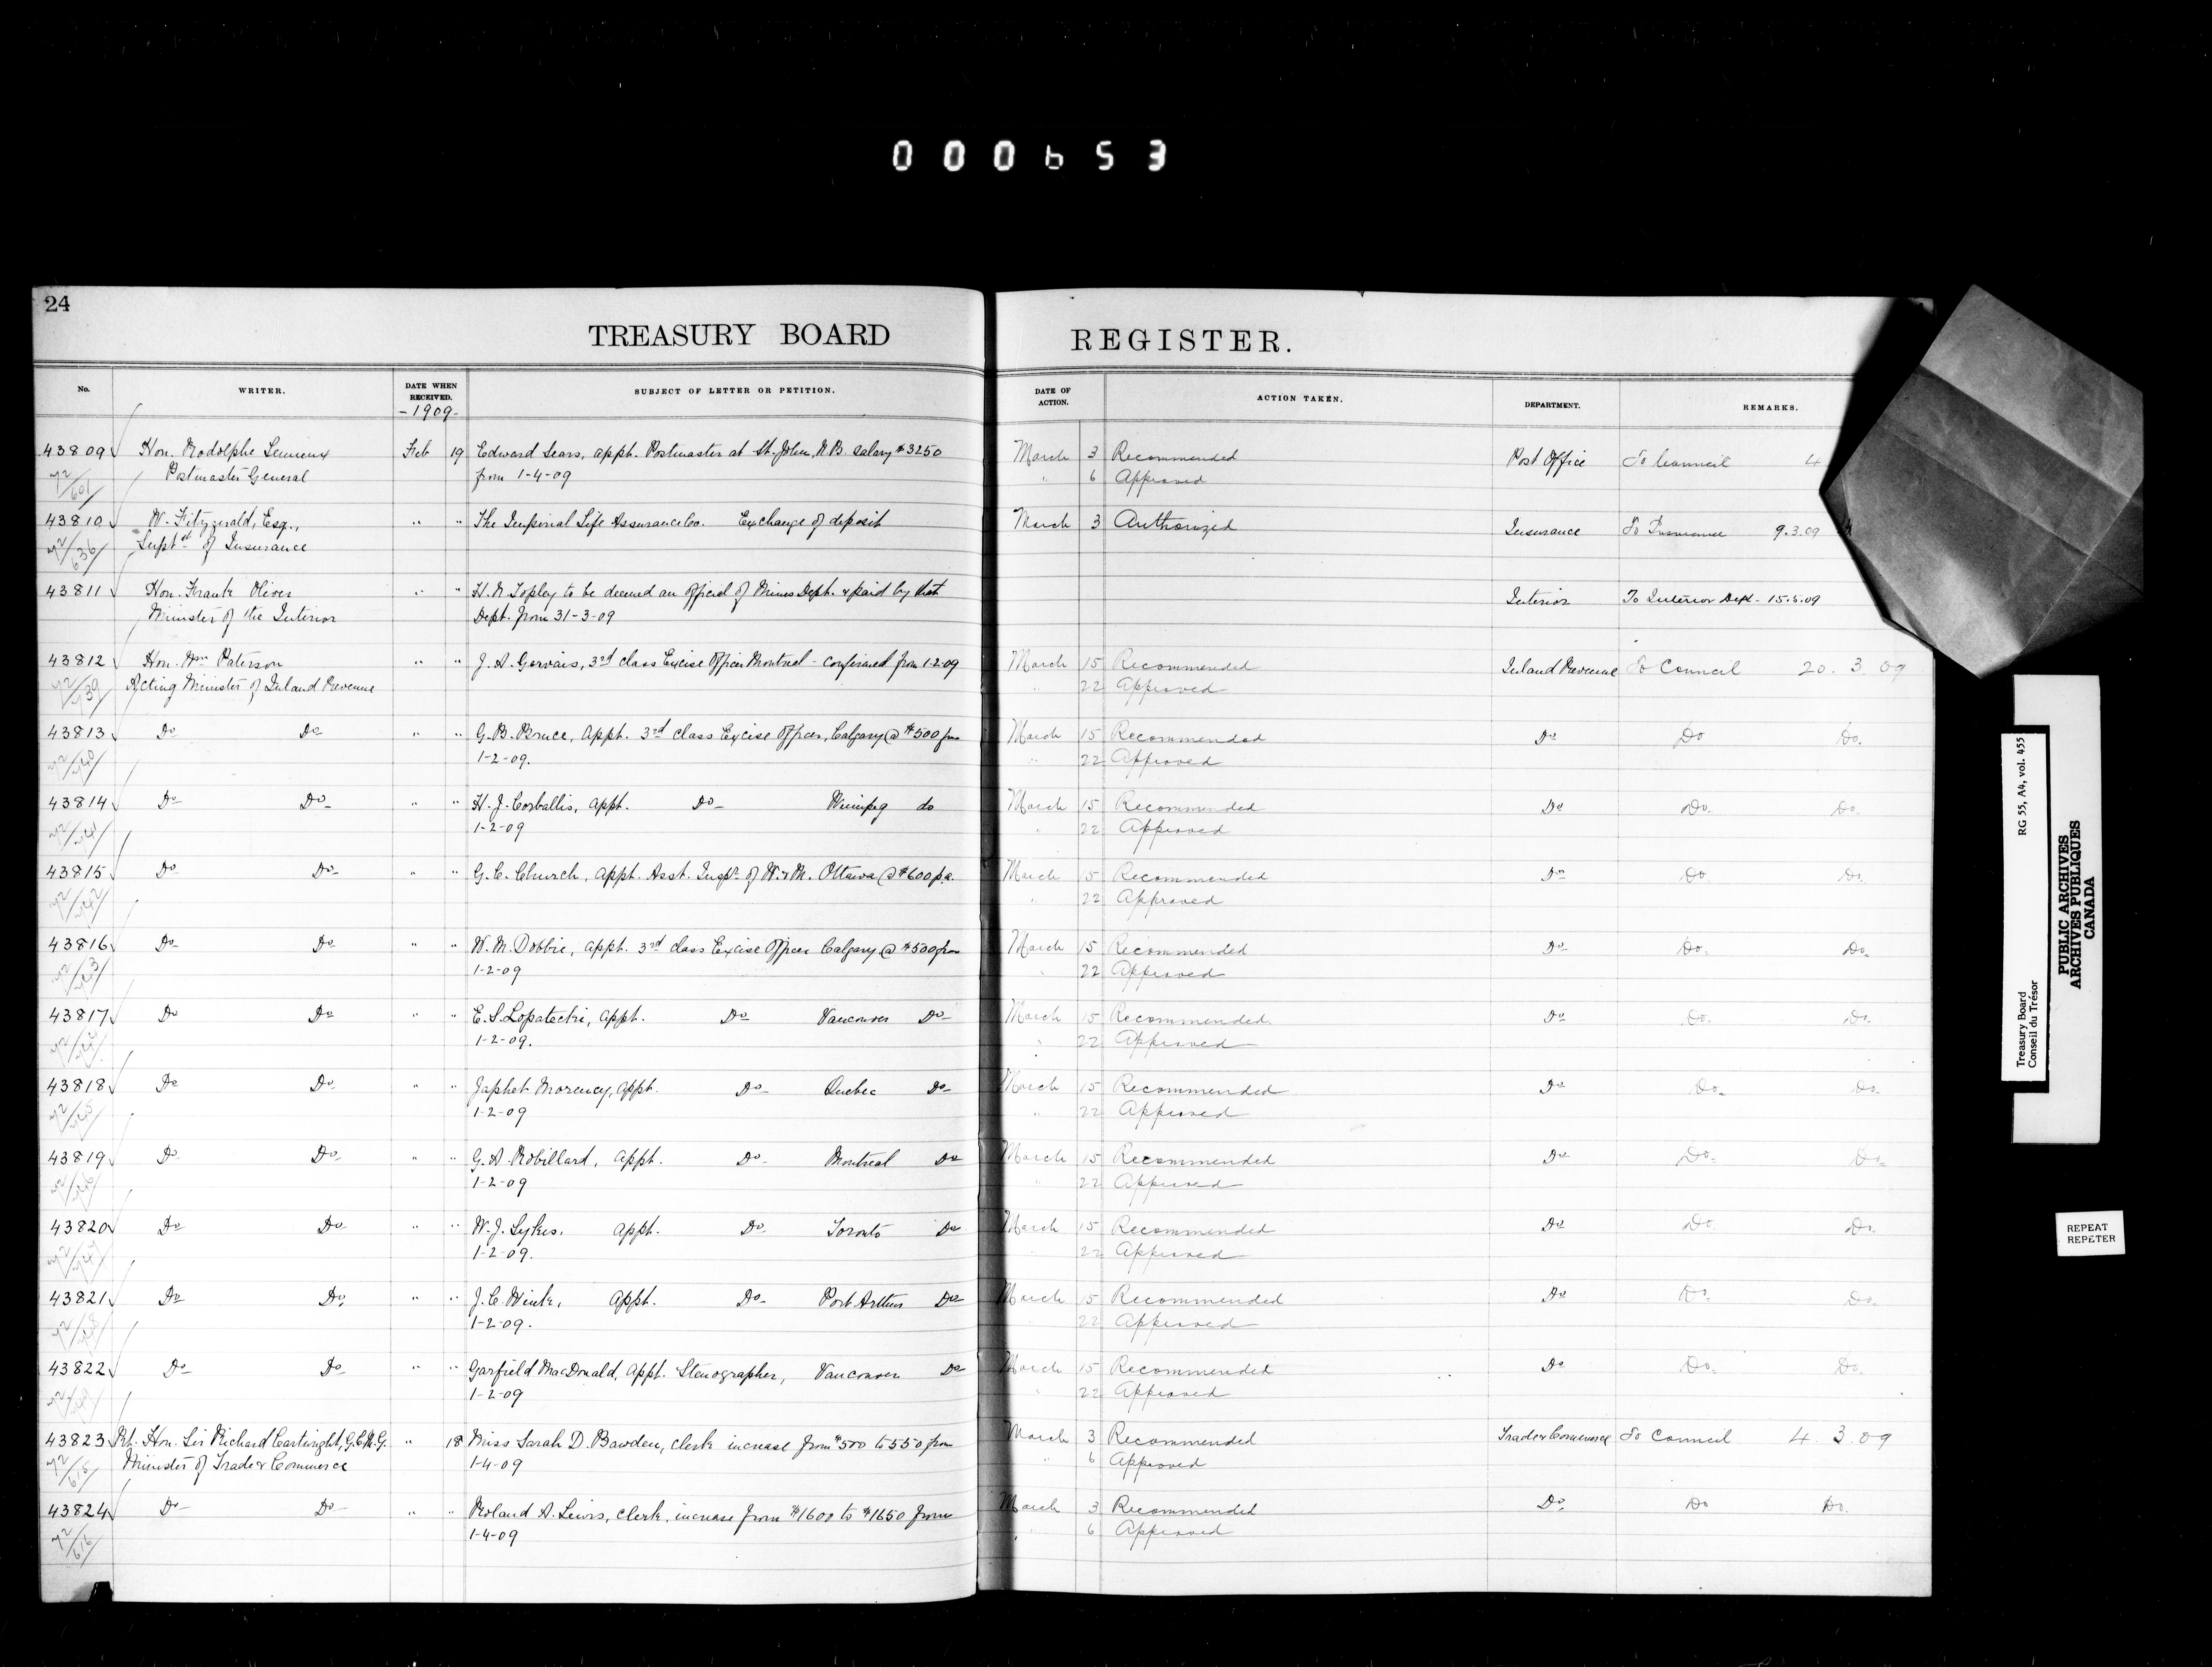 000653
24
TREASURY BOARD REGISTER.
No. WRITER. DATE WHEN RECEIVED. SUBJECT OF LETTER OR PETITION. DATE OF ACTION. ACTION TAKEN. DEPARTMENT. REMARKS.
-1909-
43809 Hon. Rodolphe Lemieux Feb 19 Edward Sears, appt. Postmaster at St. John, N.B. salary $3250 March 3 Recommended Post Office To Council 4
Postmaster General from 1-4-09 " 6 Approved
43810 W. Fitzgerald, Esq., " " The Imperial Life Assurance Co. Exchange of deposit March 3 Authorized Insurance To Insurance 9.3.09
Supt. of Insurance
43811 Hon. Frank Oliver " " H. N. Topley to be deemed an official of Mines Dept. & paid by that Interior To Interior Dept. 15.5.09
Minister of the Interior Dept. from 31-3-09
43812 Hon. Wm Paterson " " J. A. Gervais, 3rd class Excise Officer Montreal - confirmed from 1-2-09 March 15 Recommended Inland Revenue To Council 20.3.09
Acting Minister of Inland Revenue " 22 Approved
43813 Do Do " " G. B. Bruce, appt. 3rd class Excise Officer, Calgary @ $500 from March 15 Recommended Do Do Do.
1-2-09. " 22 Approved
43814 Do Do " " H. J. Corballis, appt. Do Winnipeg do March 15 Recommended Do Do. Do.
1-2-09 " 22 Approved
43815 Do Do " " G. C. Church, appt. Asst. Inspr. of W. & M. Ottawa @ $600 p.a. March 15 Recommended Do Do Do.
" 22 Approved
43816 Do Do " " W. M. Dobbie, appt. 3rd class Excise Officer Calgary @ $500 from March 15 Recommended Do Do. Do.
1-2-09 " 22 Approved
43817 Do Do " " E. S. Lopatecki, appt. Do Vancouver Do March 15 Recommended Do Do. Do.
1-2-09. " 22 Approved
43818 Do Do " " Japhet Morency, appt. Do Quebec Do March 15 Recommended Do Do. Do.
1-2-09 " 22 Approved
43819 Do Do " " G. A. Robillard, appt. Do Montreal Do March 15 Recommended Do Do. Do.
1-2-09 " 22 Approved
43820 Do Do " " W. J. Sykes, appt. Do Toronto Do March 15 Recommended Do Do. Do.
1-2-09. " 22 Approved
43821 Do Do " " J. C. Wink, appt. Do Port Arthur Do March 15 Recommended Do Do. Do.
1-2-09. " 22 Approved
43822 Do Do " " Garfield MacDonald, appt. Stenographer, Vancouver Do March 15 Recommended Do Do. Do.
1-2-09 " 22 Approved
43823 Rt. Hon. Sir Richard Cartwright, G.C.M.G. " 18 Miss Sarah D. Bawden, clerk increase from $500 to 550 from March 3 Recommended Trade & Commerce To Council 4.3.09
72/615 Minister of Trade & Commerce 1-4-09 " 6 Approved
43824 Do Do " " Roland A. Lewis, clerk, increase from $1600 to $1650 from March 3 Recommended Do Do Do.
72/616 1-4-09 " 6 Approved
Treasury Board RG 55, A4, vol. 455
Conseil du Trésor
PUBLIC ARCHIVES
ARCHIVES PUBLIQUES
CANADA
REPEAT
REPETER